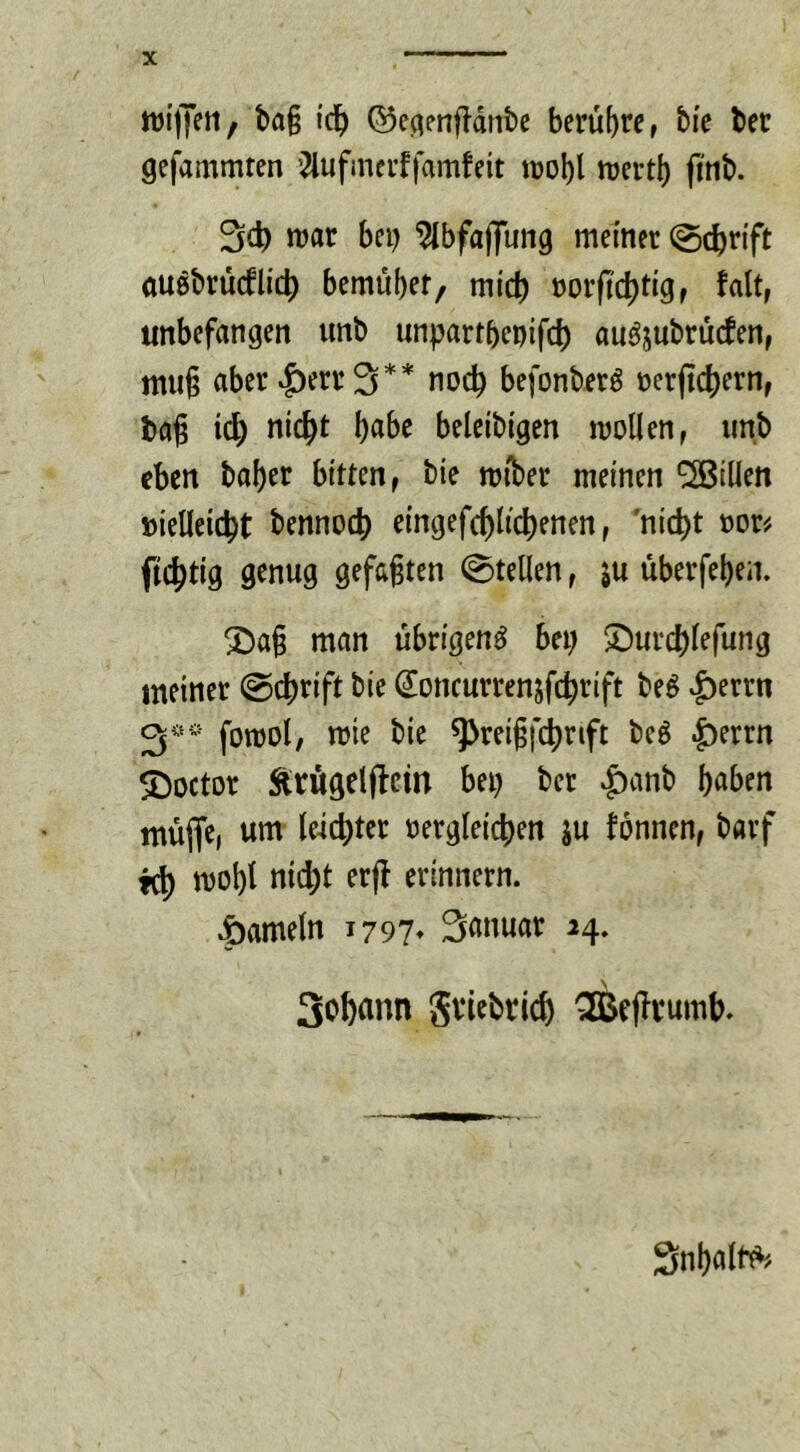 X
wissen, daß ich Gegenstände berühre, die der
gesammten Aufmerksamkeit wohl werth sind.
Ich war bey Abfassung meiner Schrift
ausdrücklich bemühet, mich vorsichtig, kalt,
unbefangen und unpartheyisch auszudrücken,
muß aber Herr J** noch besonders versichern,
daß ich nicht habe beleidigen wollen, und
eben daher bitten, die wider meinen Willen
vielleicht dennoch eingeschlichenen, nicht vor-
sichtig genug gefaßten Stellen, zu übersehen.
Daß man übrigens bey Durchlesung
meiner Schrift die Concurrenzschrift des Herrn
J** sowol, wie die Preißschrift des Herrn
Doctor Krügelstein bey der Hand haben
müsse, um leichter vergleichen zu können, darf
ich wohl nicht erst erinnern.
Hameln 1797. Januar 24.
Johann Friedrich Westrumb.
Inhalts-